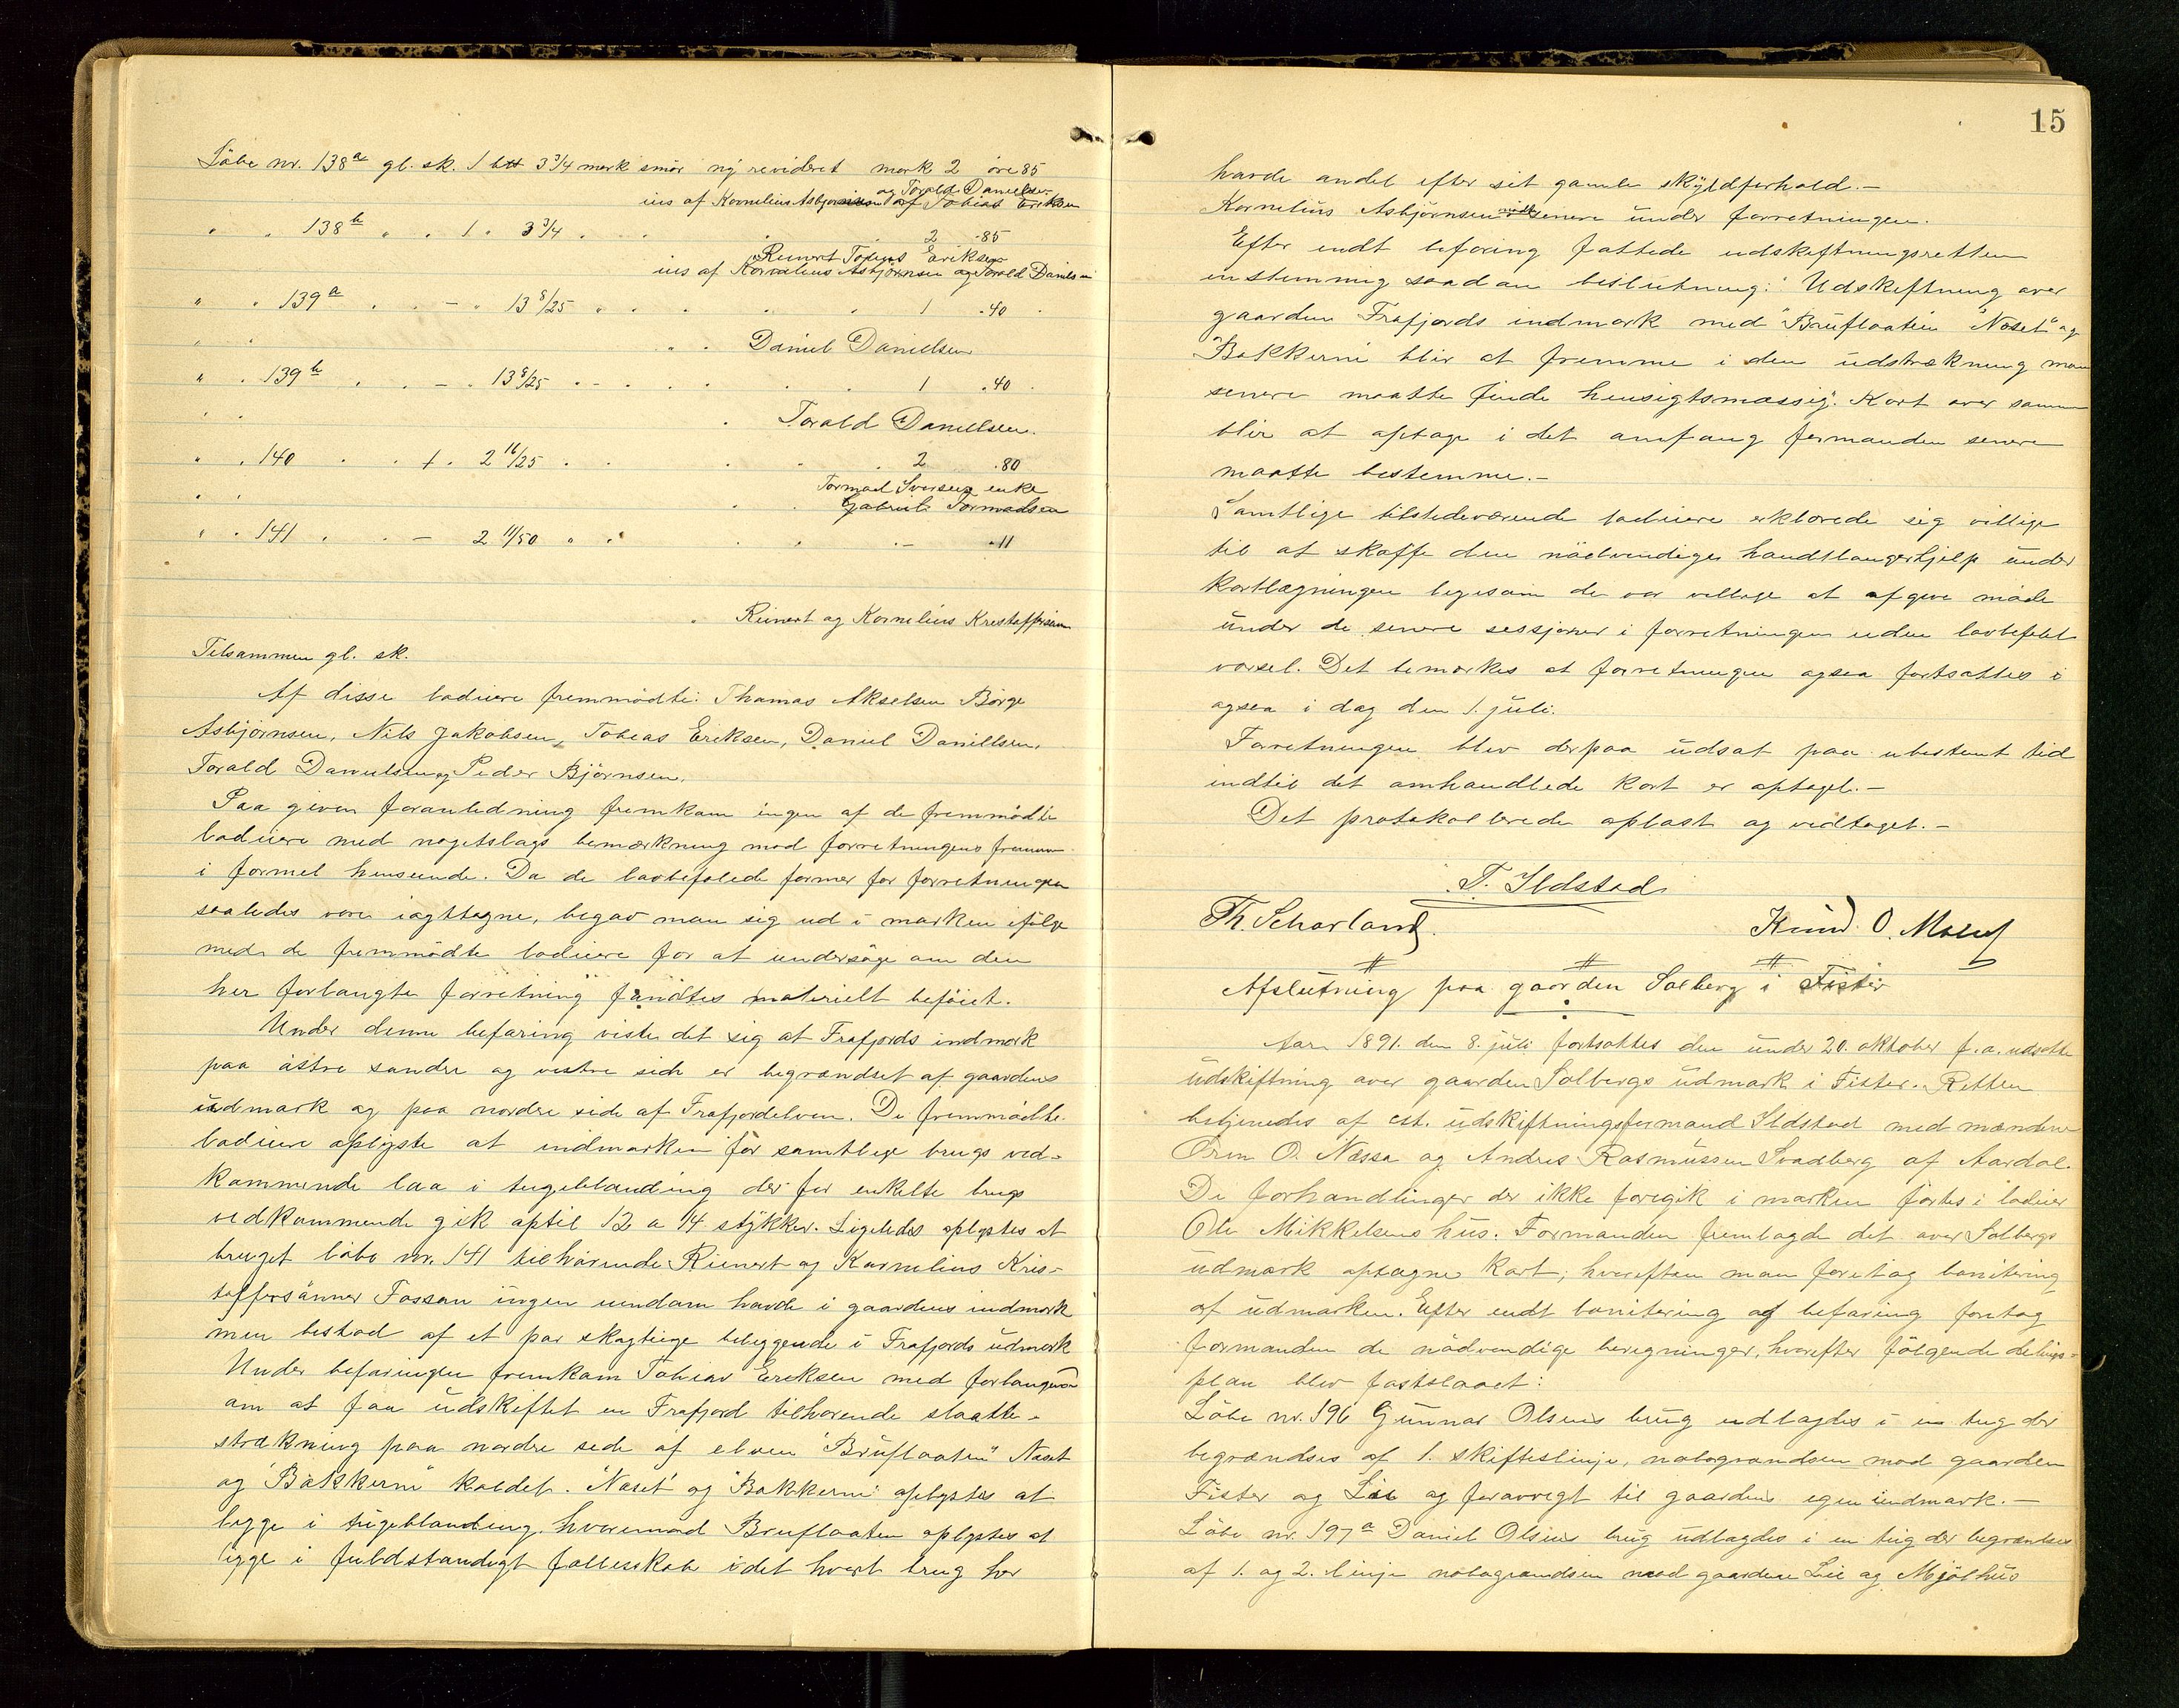 Löbe nr. 138a gl. sk. 1 3 3/4 mark smör ny revideret mark 2 öre 85
og Torald Danielsen
eies af Kornelius Asbjørnsen af Tobias Eriksen
" " 138b " . 1 " 3 3/4 . . . 2 . 85
Reinert Tobias Eriksen
eies af Kornelius Asbjørnsen og Torald Danielsen
" " 139a . . - " 13 8/25 " . . . 1 . 40
" " . . Daniel Danielsen
" . 139b . . - . 13 8/25 . . . . 1 . 40
" " . Torald Danielsen.
" . 140 . . 1 . 2 16/25 . . . 2 . 80
Tormod Iversens enke
" " . . Gabriel Tormodsen
" . 141 . . - 2 11/50 " . . . - . 11
" Reinert og Kornelius Kristoffersen
Tilsammen gl. sk.
Af disse lodeiere fremmödte: Thomas Akselsen Börge
Asbjörnsen, Nils Jakobsen, Tobias Eriksen, Daniel Daniellsen,
Torald Danielsen og Peder Björnsen.
Paa given foranledning fremkom ingen af de fremmödte
lodeiere med nogetslags bemærkning mod forretningens fremme
i formel henseende. Da de lovbefalede former for forretningen
saaledes vare iagttagne, begav man sig ud i marken ifölge
med de fremmödte lodeiere for at undersöge om den
her forlangte forretning fandtes materielt beföiet.
Under denne befaring viste det sig at Frafjords indmark
paa östre söndre og vestre side er begrændset af gaardens
udmark og paa nordre side af Frafjordelven. De fremmödte
lodeiere oplyste at indmarken for samtlige brugs ved-
kommende laa i teigeblanding der for enkelte brugs
vedkommende gik optil 12 a 14 stykker. Ligeledes oplystes at
bruget löbe nr. 141 tilhörende Rienert og Kornelius Kris-
toffersönner Fossan ingen eiendom havde i gaardens indmark
men bestod af et par skogteige beliggende i Frafjords udmark
Under befaringen fremkom Tobias Eriksen med forlangende
om at faa udskiftet en Frafjord tilhörende slaatte-
strækning paa nordre side af elven "Bruflaaten" Næset
og "Bakkerne" kaldet. "Næset" og "Bakkerne" oplystes at
ligge i teigeblanding, hvorimod Bruflaaten oplystes at
ligge i fuldstændigt fællesskab idet hvert brug her
15
havde andel efter sit gamle skyldforhold.-
Kornelius Asbjörnsen mödte senere under forretningen.
Efter endt befaring fattede udskiftningsretten
enstemmig saadan beslutning: "Udskiftning over
gaarden Frafjords indmark med "Bruflaaten" "Næset" og
"Bakkerne" blir at fremme i den udstrækning man
senere maatte finde hensigtsmæssig". Kort over samme
blir at optage i det omfang formanden senere
maatte bestemme.-
Samtlige tilstedeværende lodeiere erklærede sig villige
til at skaffe den nödvendige haandtlangerhjelp under
kortlægningen ligesom de var villige at afgive möde
under de senere sessjoner i forretningen uden lovbefalet
varsel. Det bemærkes at forretningen ogsaa fortsattes i
ogsaa i dag den 1. juli.
Forretningen blev derpaa udsat paa ubestemt tid
indtil det omhandlede kort er optaget.-
Det protokollerede oplæst og vedtaget.-
T. Ildstad
Th. Scharland. Knud O. Moluf
Afslutning paa gaarden Solberg i Fister
Aar 1891. den 8. juli fortsattes den under 20. oktober f.a. udsatte
udskiftning over gaarden Solbergs udmark i Fister. Retten
betjenedes af cst. udskiftningsformand Ildstad med mændene
Orm O. Næssa og Andres Rasmussen Svadberg af Aardal.
De forhandlinger der ikke foregik i marken förtes i lodeier
Ole Mikkelsens hus. Formanden fremlagde det over Solbergs
udmark optagne kart; hvorefter man foretog bonitering
af udmarken. Efter endt bonitering og befaring foretog
formanden de nödvendige beregninger, hvorefter fölgende delings-
plan blev fastslaaet:
Löbe nr. 196 Gunnar Olsens brug udlagdes i en teig der
begrændses af 1. skifteslinje, nabogrændsen mod gaarden
Fister og Lie og foravrigt til gaardens egen indmark.-
Löbe nr. 197a Daniel Olsens brug udlagdes i en teig der begrændses
af 1. og 2. linje nabogrændsen mod gaardene Lie og Mjölhus